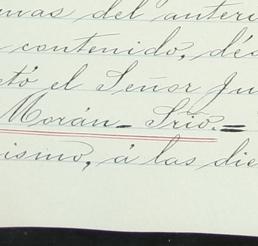 del anteri
contenido, dés
tó el Señor Ju
Morán_ Srio.=
ismo, á las die